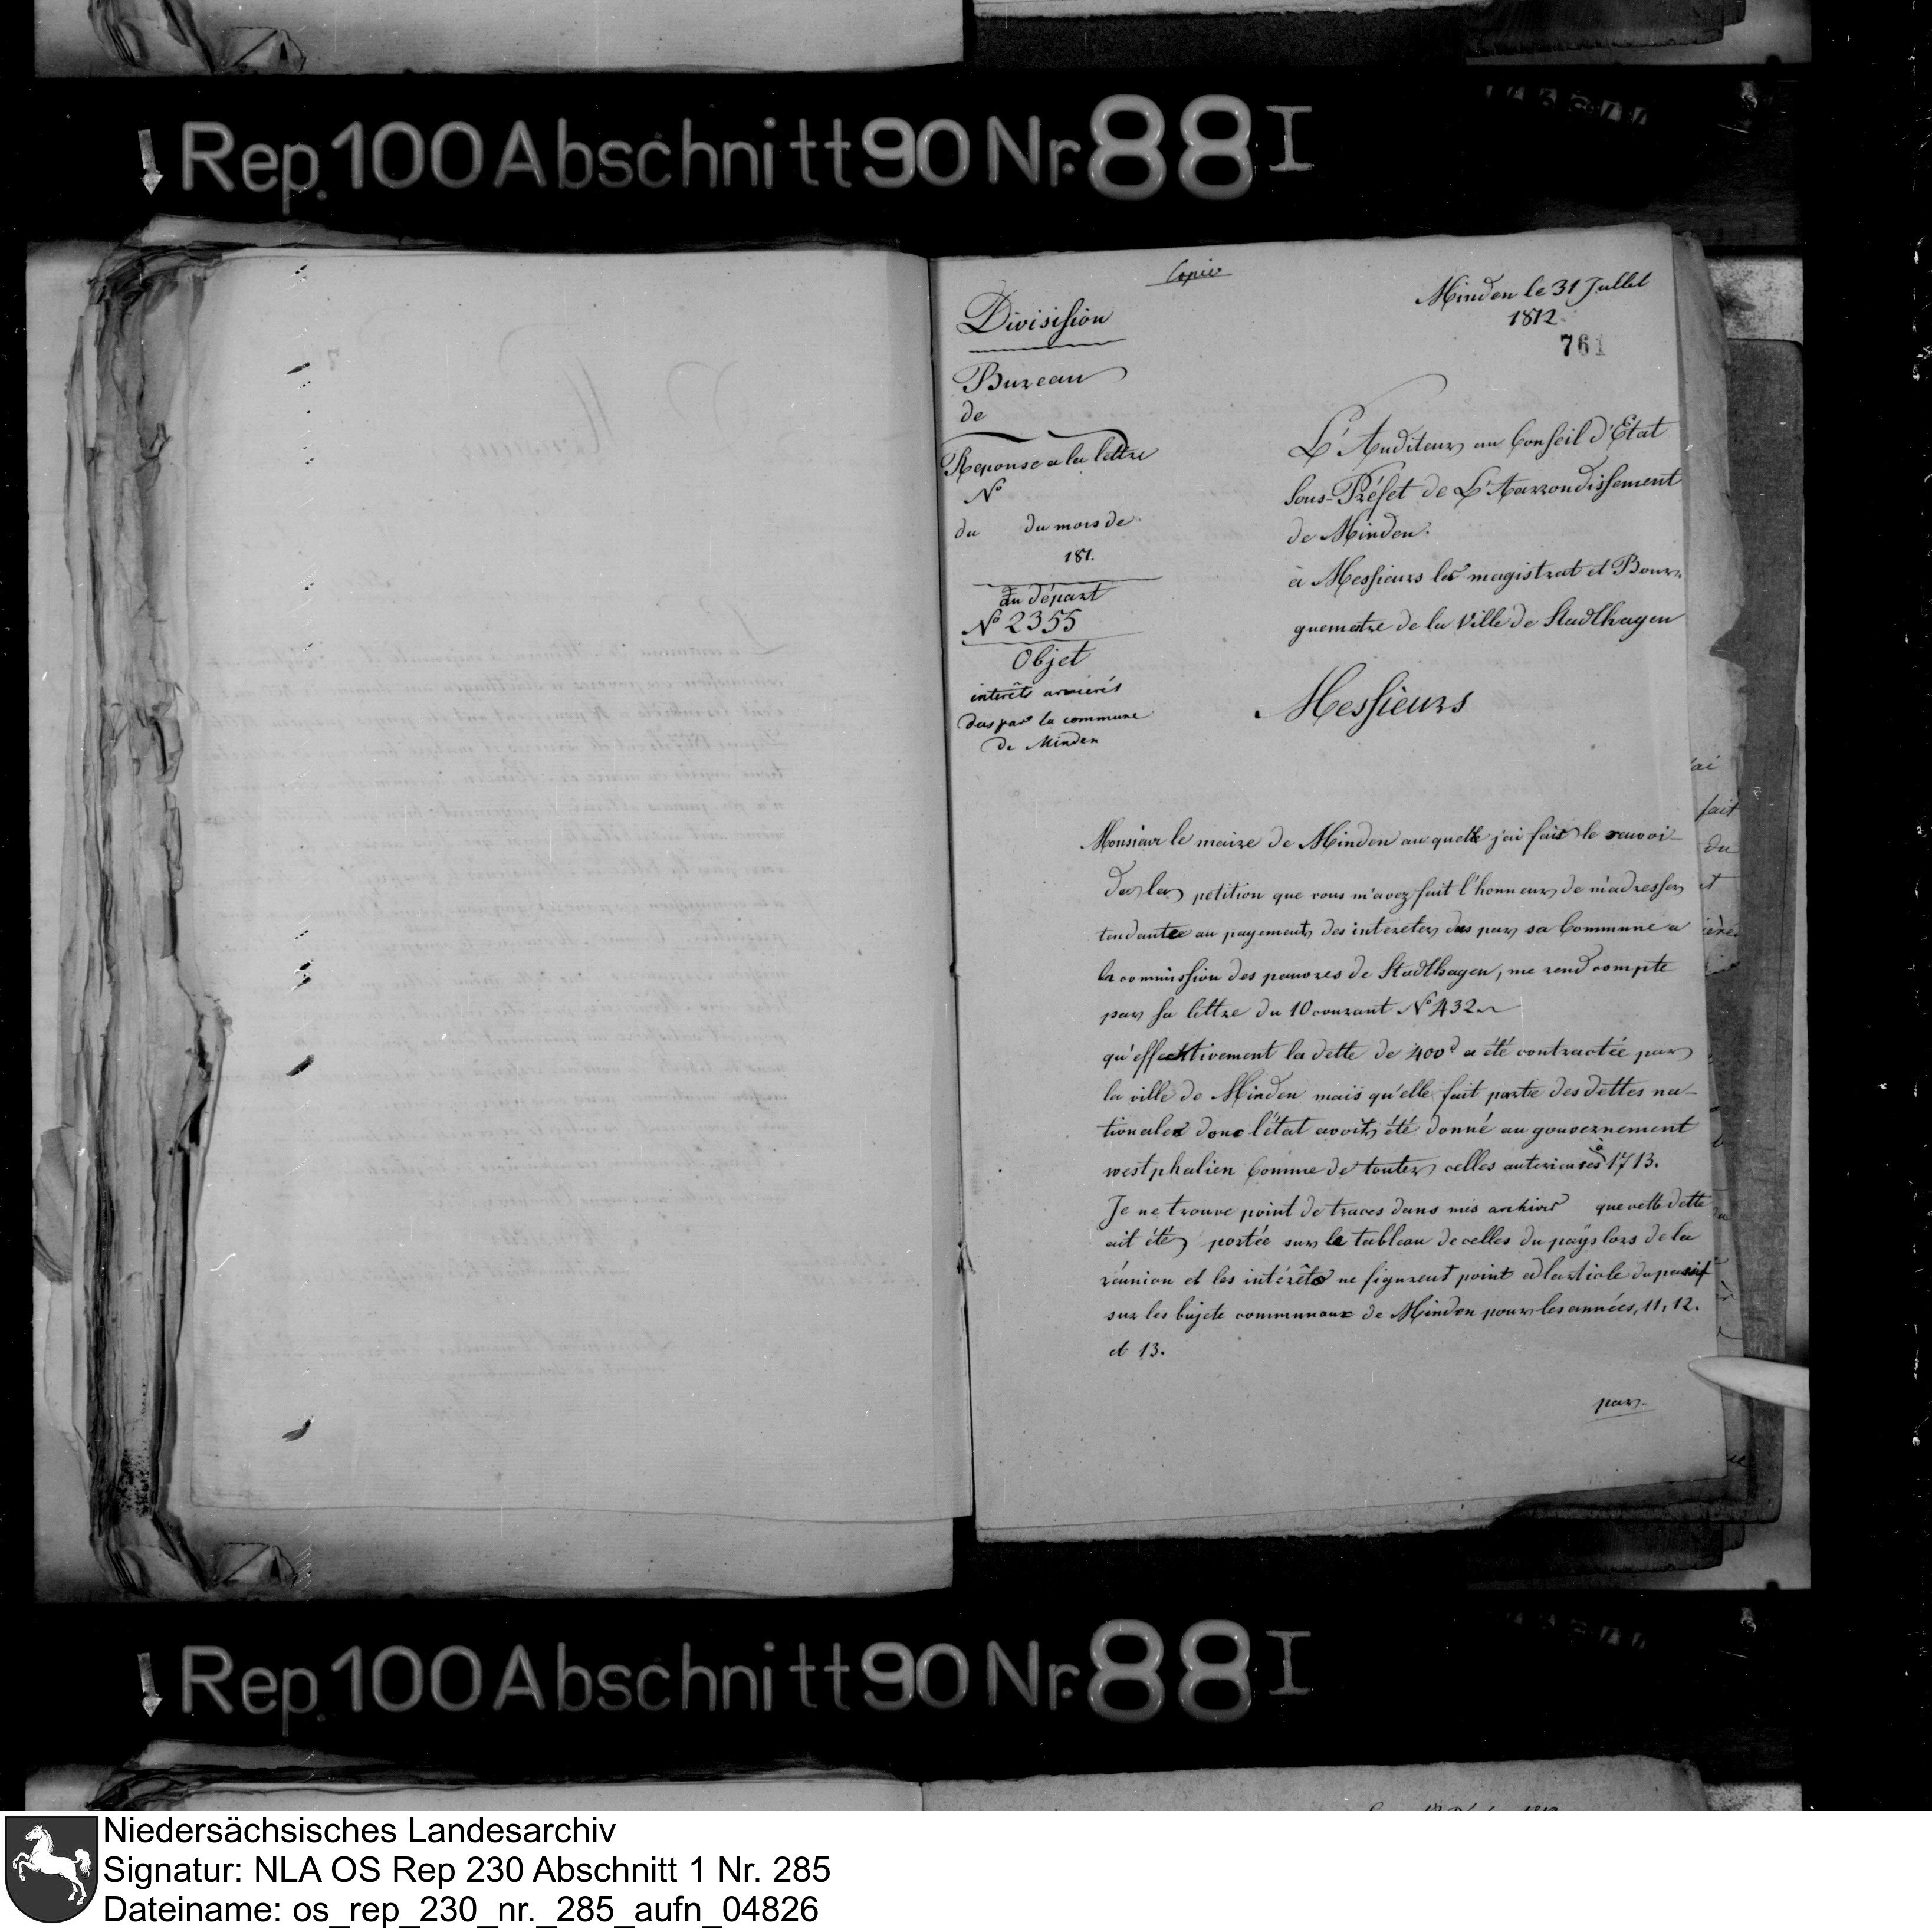 Rep. 100 Abschnitt 90 Nr. 88 I
Copie
Minden le 31 Jullet
1812.
761
Divisission
Bureau
de
Reponse a la lettre
No
du du mois de
181.
du départ
No 2355
Objet
interêts arrierés
dus par la commune
de Minden
L'Auditeur au Conseil d'Etat
Sous-Préfet de L'Aarrondissement
de Minden.
à Messieurs les magistrat et Bour-
guemestre de la Ville de Stadthagen
Messieurs
Monsieur le maire de Minden au quelle j'ai fait le renvoi
de la petition que vous m'avez fait l'honneur de m'adresser
tendante au payement des interetes dus par sa Commune a
la commission des pauvres de Stadthagen, me rend compte
par sa lettre du 10 courant No 432
qu'effectivement la dette de 400 a été contractée par
la ville de Minden mais qu'elle fait partie des dettes na-
tionales donc l'état avoit été donné au gouvernement
westphalien Comme de toutes celles anterieures à 1713.
Je ne trouve point de traces dans mes archives que cette dette
ait été portée sur le tableau de celles du païs lors de la
réunion et les intérêts ne figurent point a l'article du passif
sur les bujets communaux de Minden pour les années, 11, 12.
et 13.
par
fait
du
et
Rep. 100 Abschnitt 90 Nr. 88 I
Niedersächsisches Landesarchiv
Signatur: NLA OS Rep 230 Abschnitt 1 Nr. 285
Dateiname: os_rep_230_nr._285_aufn_04826